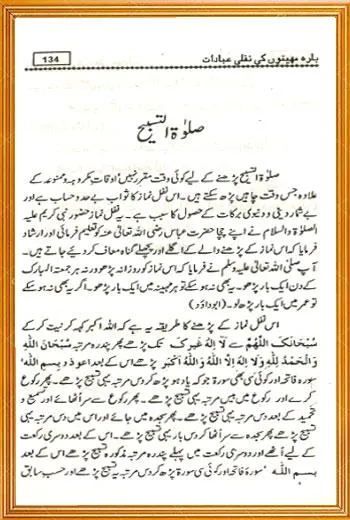 بارہ مہینوں کی نفلی عبادات
134
صلوٰۃ التسبیح
صلوٰۃ التسبیح پڑھنے کے لیے کوئی وقت مقرر نہیں اوقات مکروہہ و ممنوعہ کے
علاوہ جس وقت چاہیں پڑھ سکتے ہیں۔ اس نفل نماز کا ثواب بے حد و حساب ہے اور
بے شمار دینی و دنیوی برکات کے حصول کا سبب ہے۔ یہ نفل نماز حضور نبی کریم علیہ
الصلوٰۃ والسلام نے اپنے چچا حضرت عباس رضی اللہ تعالیٰ عنہ کو تعلیم فرمائی اور ارشاد
فرمایا کہ اس نماز کے پڑھنے والے کے اگلے اور پچھلے گناہ معاف کر دیئے جاتے ہیں۔
آپ صلی اللہ تعالیٰ علیہ وسلم نے فرمایا کہ اس نماز کو روزانہ پڑھو ورنہ ہر جمعۃ المبارک
کے دن ایک بار پڑھو۔ یہ بھی نہ ہو سکے تو ہر مہینہ میں ایک بار پڑھو۔ اگر یہ بھی نہ ہو سکے
تو عمر میں ایک بار پڑھ لو۔ (ابوداؤد)
اس نفل نماز کے پڑھنے کا طریقہ یہ ہے کہ اللہ اکبر کہہ کر نیت کر کے
سُبْحَانَكَ اللّٰهُمَّ سے لَا إِلٰهَ غَيْرُكَ تک پڑھے پھر پندرہ مرتبہ سُبْحَانَ اللّٰهِ
وَالْحَمْدُ لِلّٰهِ وَلَا إِلٰهَ إِلَّا اللّٰهُ وَاللّٰهُ أَكْبَرُ پڑھے اس کے بعد اعوذ و بسم اللہ'
سورہ فاتحہ اور کوئی سی بھی سورۃ جو کہ یاد ہو پڑھ کر دس مرتبہ یہی تسبیح پڑھے۔ پھر رکوع
کرے اور رکوع میں دس مرتبہ یہی تسبیح پڑھے۔ پھر رکوع سے سر اٹھائے اور تسمیع و
تحمید کے بعد دس مرتبہ یہی تسبیح پڑھے۔ پھر سجدہ میں جائے اور اس میں دس مرتبہ یہی
تسبیح پڑھے پھر سجدہ سے سر اٹھا کر دس بار یہی تسبیح پڑھے۔ اس کے بعد دوسری رکعت
کے لیے اٹھے اور دوسری رکعت میں پہلے پندرہ مرتبہ مذکورہ تسبیح پڑھے اس کے بعد
بسم اللہ' سورۃ فاتحہ اور کوئی سی سورۃ پڑھ کر دس مرتبہ یہ تسبیح پڑھے اور حسب سابق